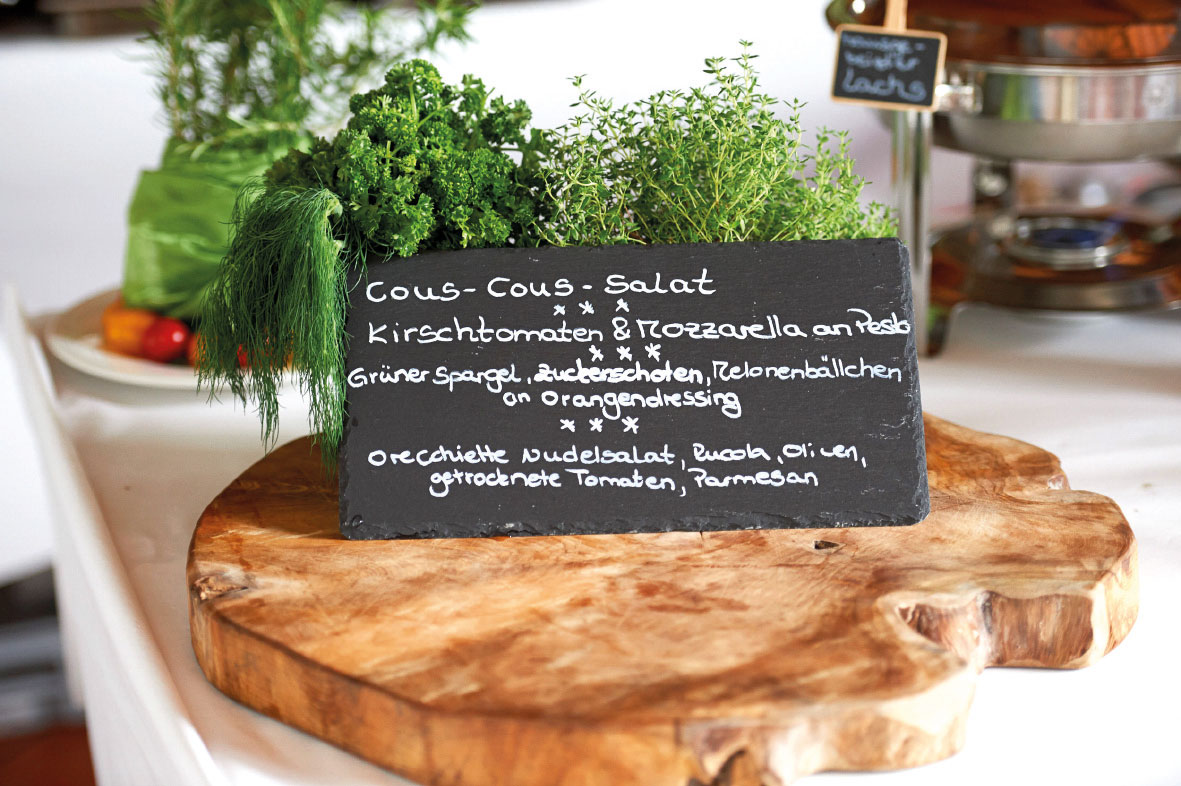 Lachs
Cous-Cous-Salat
* * *
Kirschtomaten & Mozzarella an Pesto
* * *
Grüner Spargel, Zuckerschoten, Melonenbällchen
an Orangendressing
* * *
Orecchiette Nudelsalat, Rucola, Oliven,
getrocknete Tomaten, Parmesan